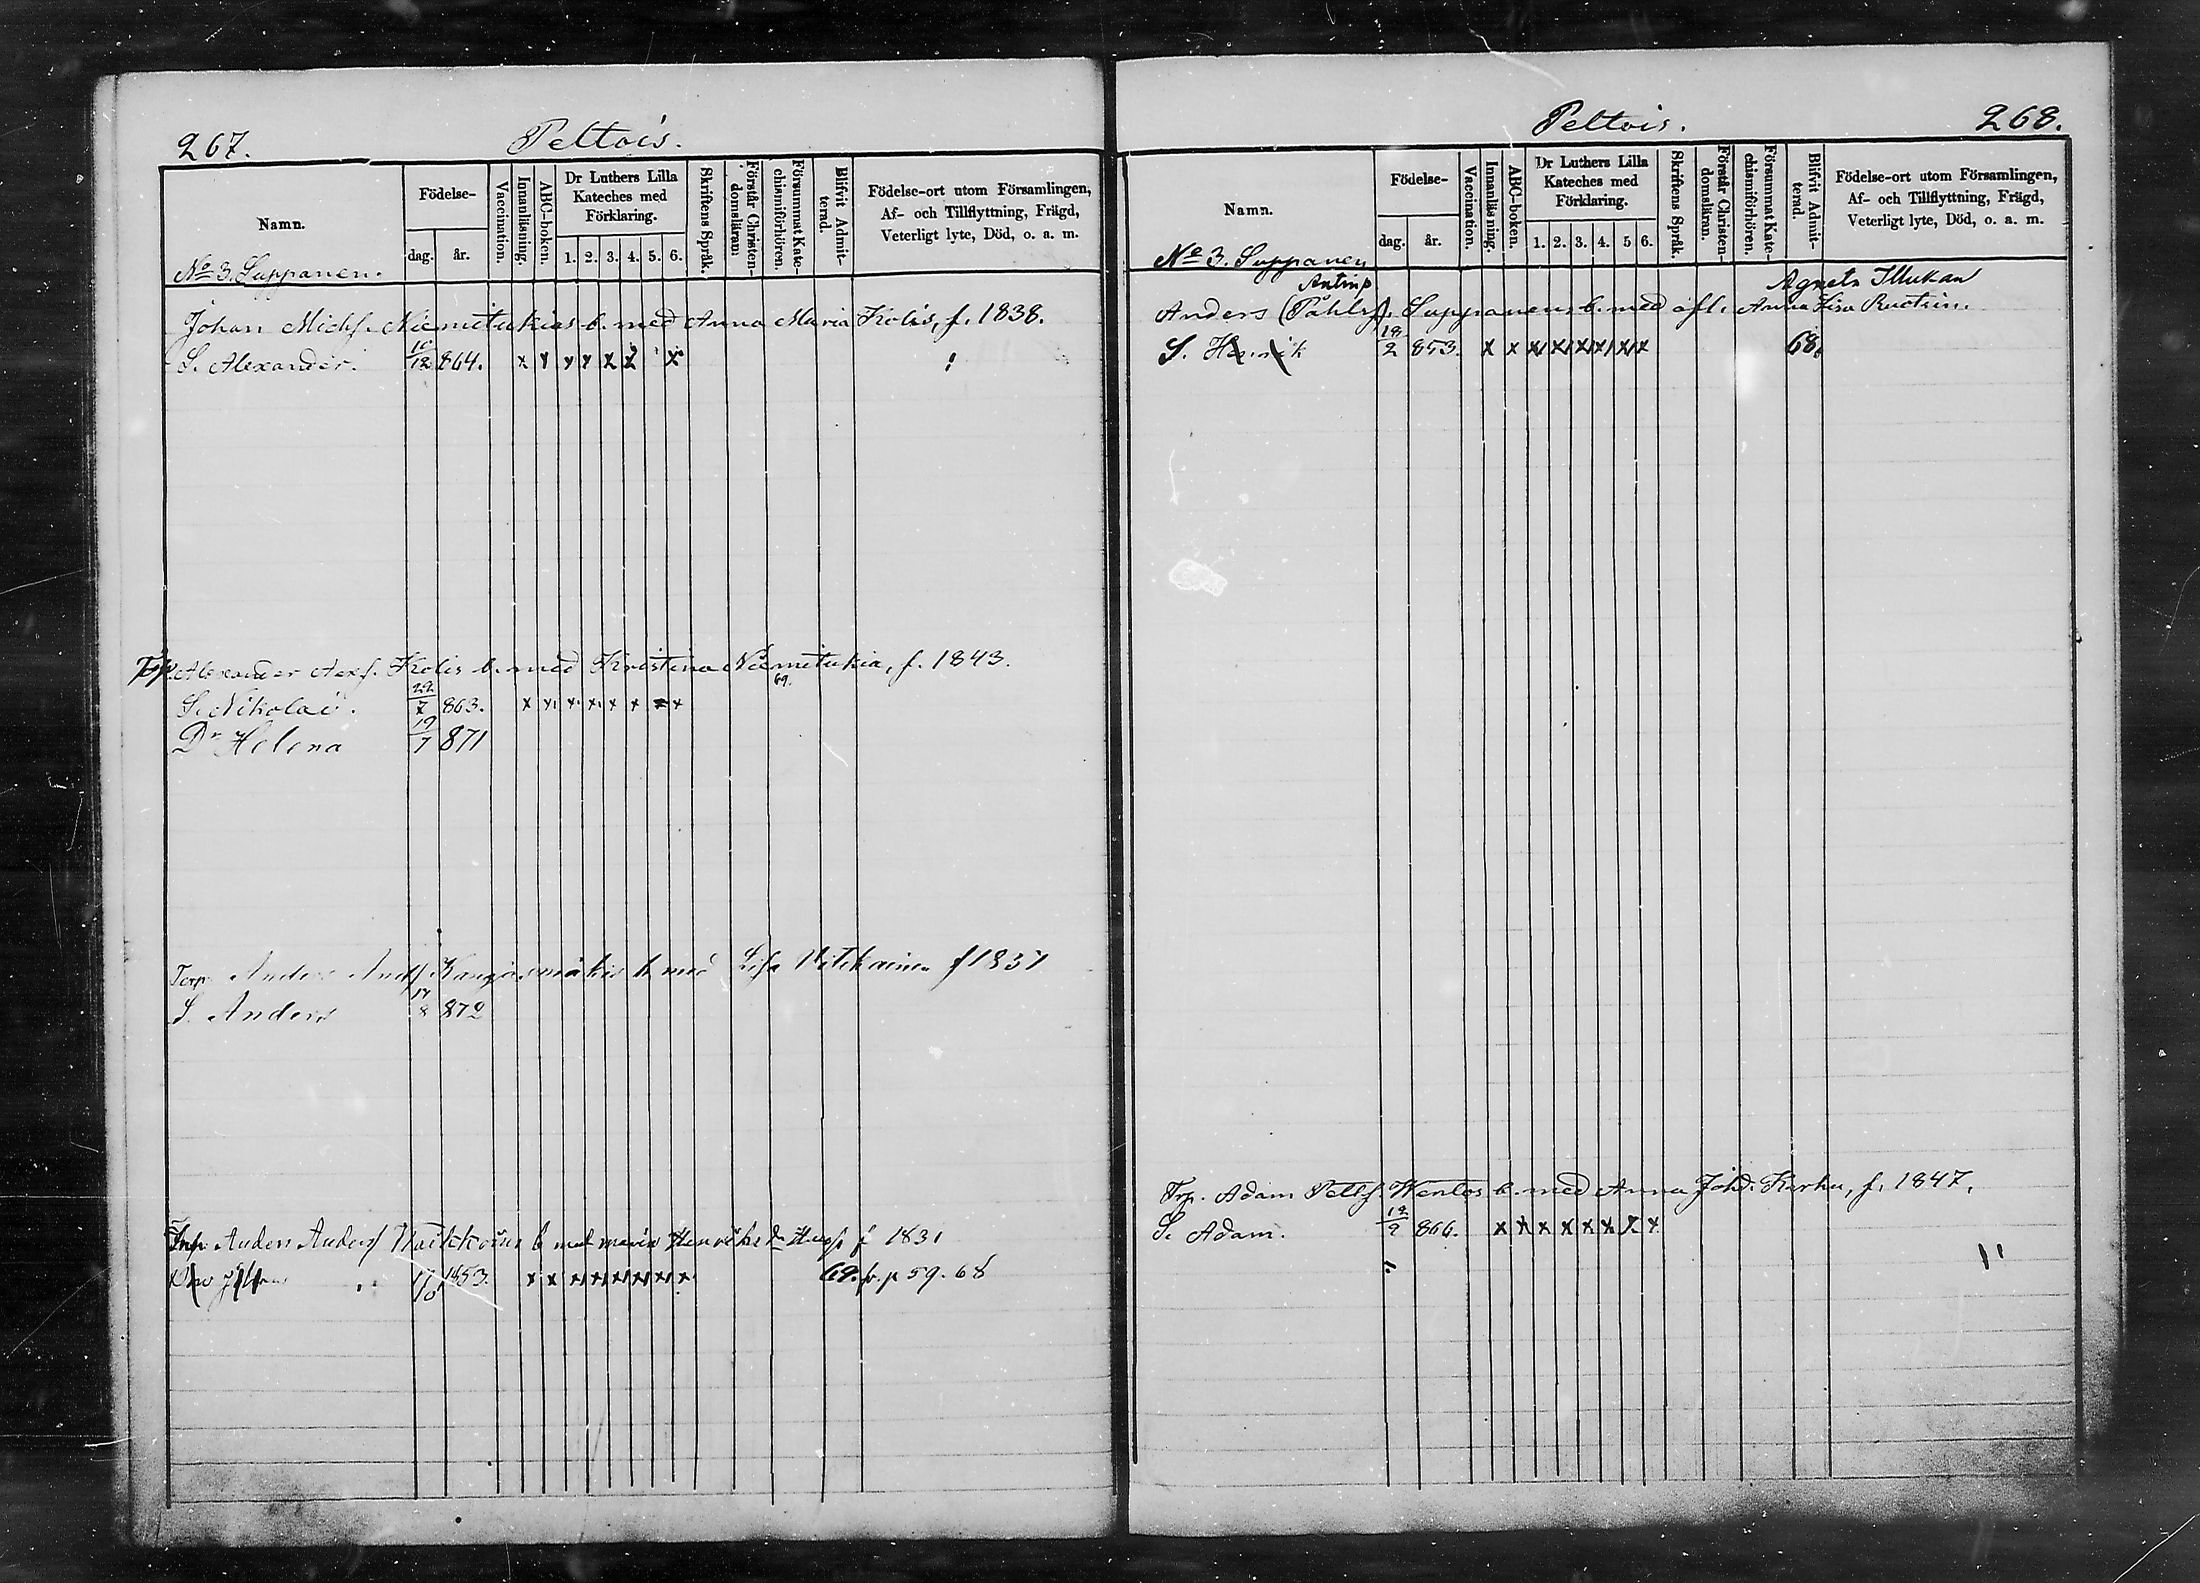 267. Peltois.
Namn.
Födelse-
dag. år.
Vaccination.
Innanläsning.
ABC-boken.
Dr Luthers Lilla
Kateches med
Förklaring.
1. 2. 3. 4. 5. 6.
Skriftens Språk.
Förstår Christen-
domsläran.
Försummat Kate-
chismiförhören.
Blifvit Admit-
terad.
Födelse-ort utom Församlingen,
Af- och Tillflyttning, Frägd,
Veterligt lyte, Död, o. a. m.
No 3. Suppanen.
Johan Michs. Niemitukias b. med Anna Maria Kolis, f. 1838.
S. Alexander. 10/12 864. x x x x x x x
Alexander Axf. Kolis b. med Kristina Niemitukia, f. 1843.
69.
S. Nikolai. 22/7 863. x x x x x x x x
Dr Helena 19/7 871
Torp Anders Andf. Kangasmäkis b med Lisa f 1837
S. Anders 17/8 872
Anders Andersf b med Maria f 1831
Johan 1853. x x x x x x x x 69. fr. p 59. 68
Peltois. 268.
Namn.
Födelse-
dag. år.
Vaccination.
Innanläsning.
ABC-boken.
Dr Luthers Lilla
Kateches med
Förklaring.
1. 2. 3. 4. 5 6.
Skriftens Språk.
Förstår Christen-
domsläran.
Försummat Kate-
chismiförhören.
Blifvit Admit-
terad.
Födelse-ort utom Församlingen,
Af- och Tillflyttning, Frägd,
Veterligt lyte, Död, o. a. m.
No 3. Suppanen
Antinp Agneta Illukan
Anders (Påhlsf). Suppanens b. med afl. Anna Lisa Ruotsin.
S. Henrik 18/2 853. x x x x x x x x 68.
Trp. Adam Wentos b. med Anna Johd. Kerhu, f. 1847.
S. Adam. 12/9 866. x x x x x x x x